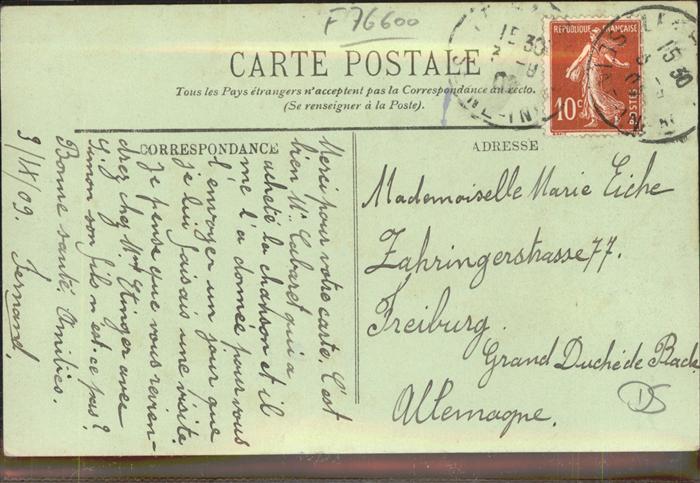 F 76600
CARTE POSTALE
Tous les Pays étrangers n'acceptent pas la Correspondance au recto.
(Se renseigner à la Poste).
CORRESPONDANCE
ADRESSE
REPUBLIQUE FRANÇAISE
10c
POSTES
15 30
15 30
Merci pour votre carte. C'est
bien Mr Cabaret qui a
acheté la chanson et il
me l'a donnée pour vous
l'envoyer un jour que
je lui faisais une visite.
Je pense que vous revien-
drez chez Mme Etinger avec
Simon son fils n'est ce pas?
Bonne santé, Amitiés.
3/IX/09. Fernand.
Mademoiselle Marie Eiche
Zahringerstrasse 77.
Freiburg.
Grand Duché de Bade
Allemagne.
DS